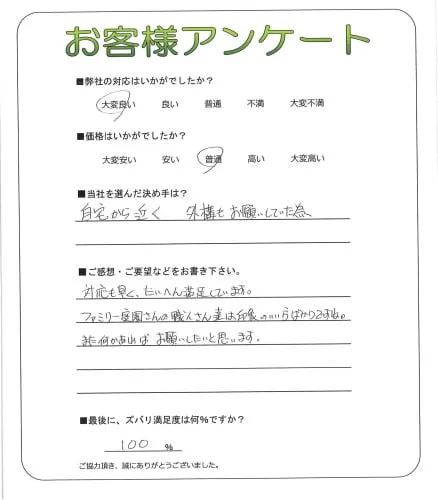 お客様アンケート
■弊社の対応はいかがでしたか？
大変良い 良い 普通 不満 大変不満
■価格はいかがでしたか？
大変安い 安い 普通 高い 大変高い
■当社を選んだ決め手は？
自宅から近く 外構もお願いしていた為、
■ご感想・ご要望などをお書き下さい。
対応も早く、たいへん満足しています。
ファミリー庭園さんの職人さん達は印象のいい方ばかりですね。
また何かあれば お願いしたいと思います。
■最後に、ズバリ満足度は何％ですか？
100 ％
ご協力頂き、誠にありがとうございました。